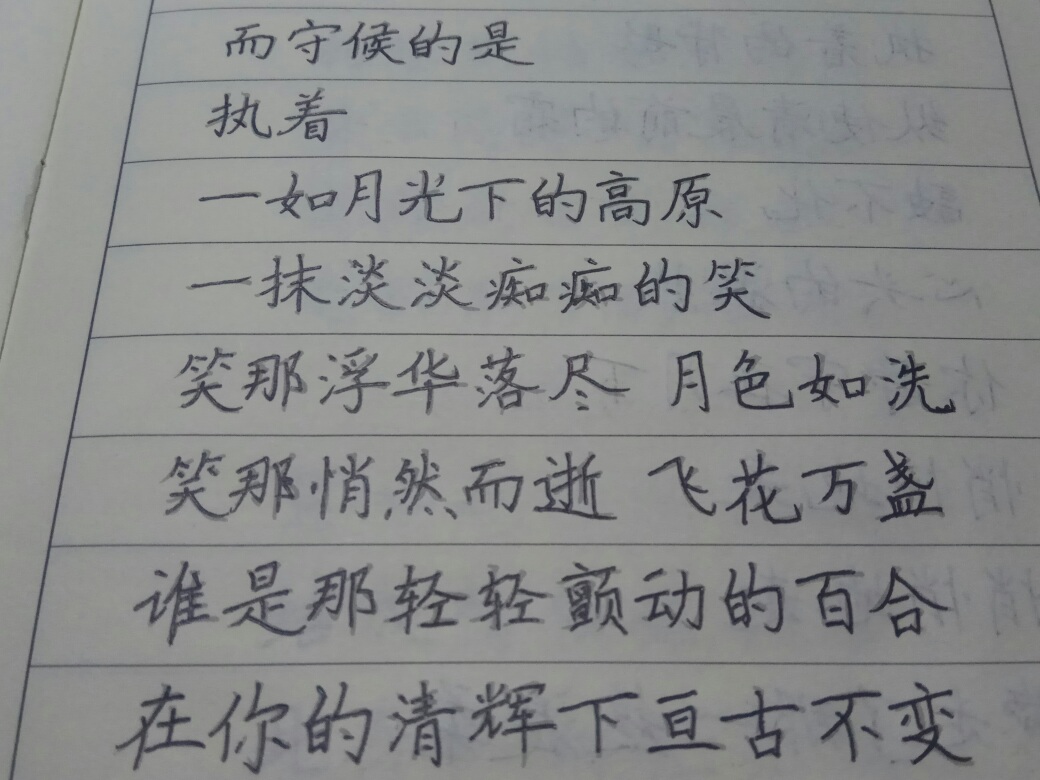 而守候的是
执着
一如月光下的高原
一抹淡淡痴痴的笑
笑那浮华落尽 月色如洗
笑那悄然而逝 飞花万盏
谁是那轻轻颤动的百合
在你的清辉下亘古不变